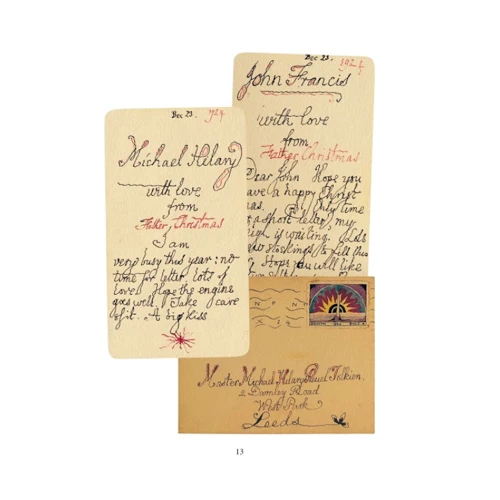 Dec 23. 1924
Michael Hilary
with love
from
Father Christmas
I am
very busy this year: no
time for letter. Lots of
love. Hope the engine
goes well. Take care
of it. A big kiss
Dec 23. 1924
John Francis
with love
from
Father Christmas
Dear John Hope you
have a happy Christ
mas. Only time
for a short letter, my
sleigh is waiting. Lots
new stockings to fill this
Hope you will like
Master Michael Hilary Reuel Tolkien.
2 Darnley Road
West Park
Leeds
13